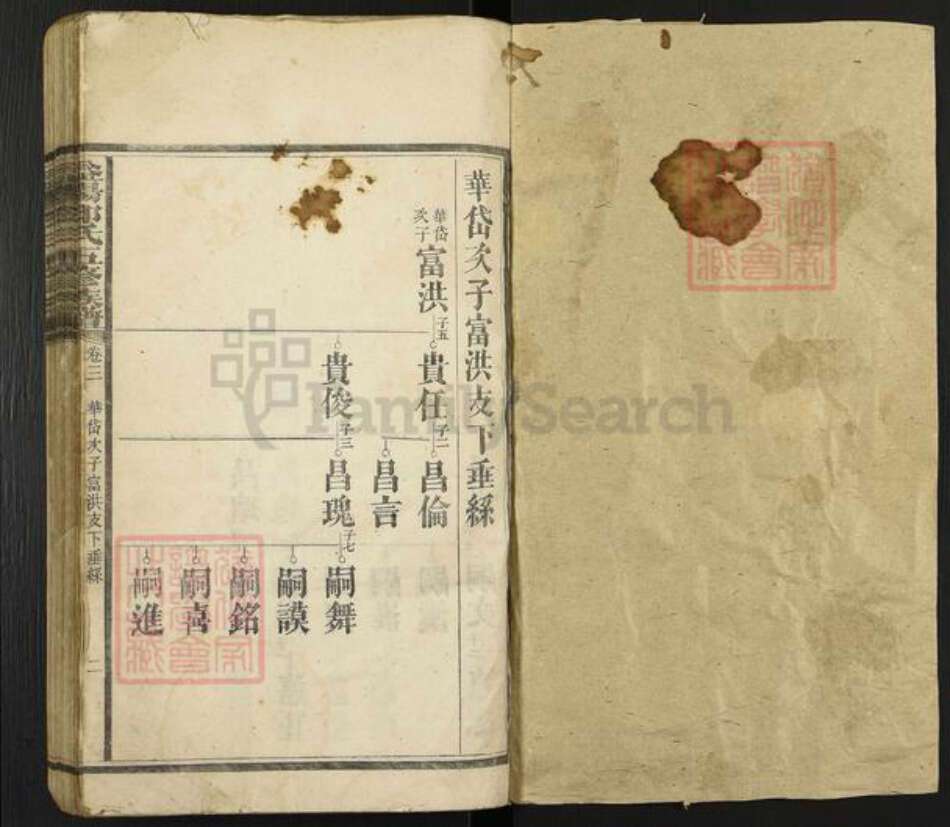 華岱次子富洪支下垂絲
華岱次子富洪子五
貴任子二
貴俊子三
昌倫
昌言
昌瑰子七
嗣舞
嗣謨
嗣銘
嗣喜
嗣進
氏五修族譜
卷三
華岱次子富洪支下垂絲
二
FamilySearch